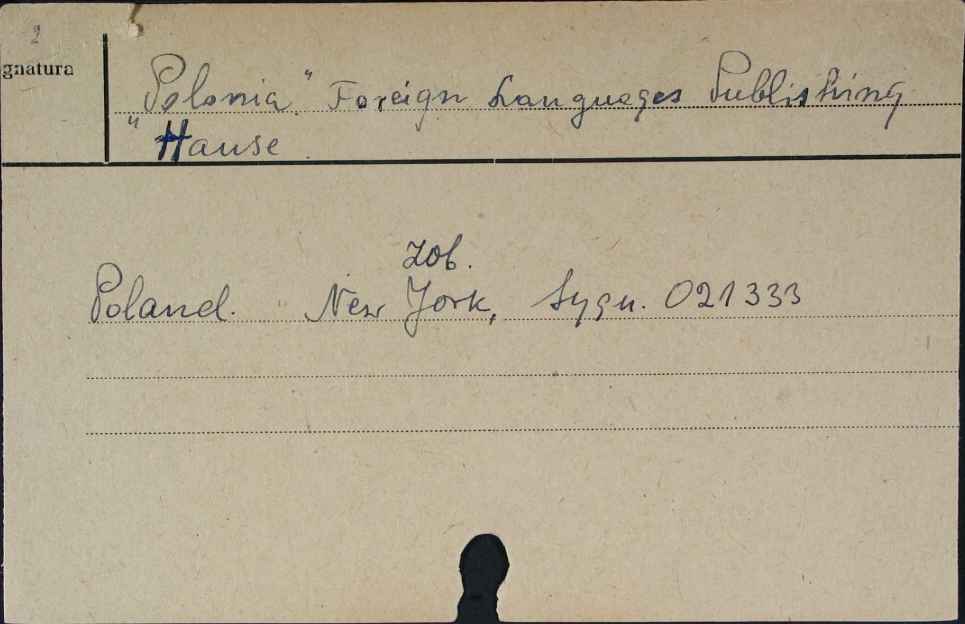 2
gnatura
„Polonia" Foreign Languages Publishing
Hause.
Zob.
Poland. New York, Sygn. 021333